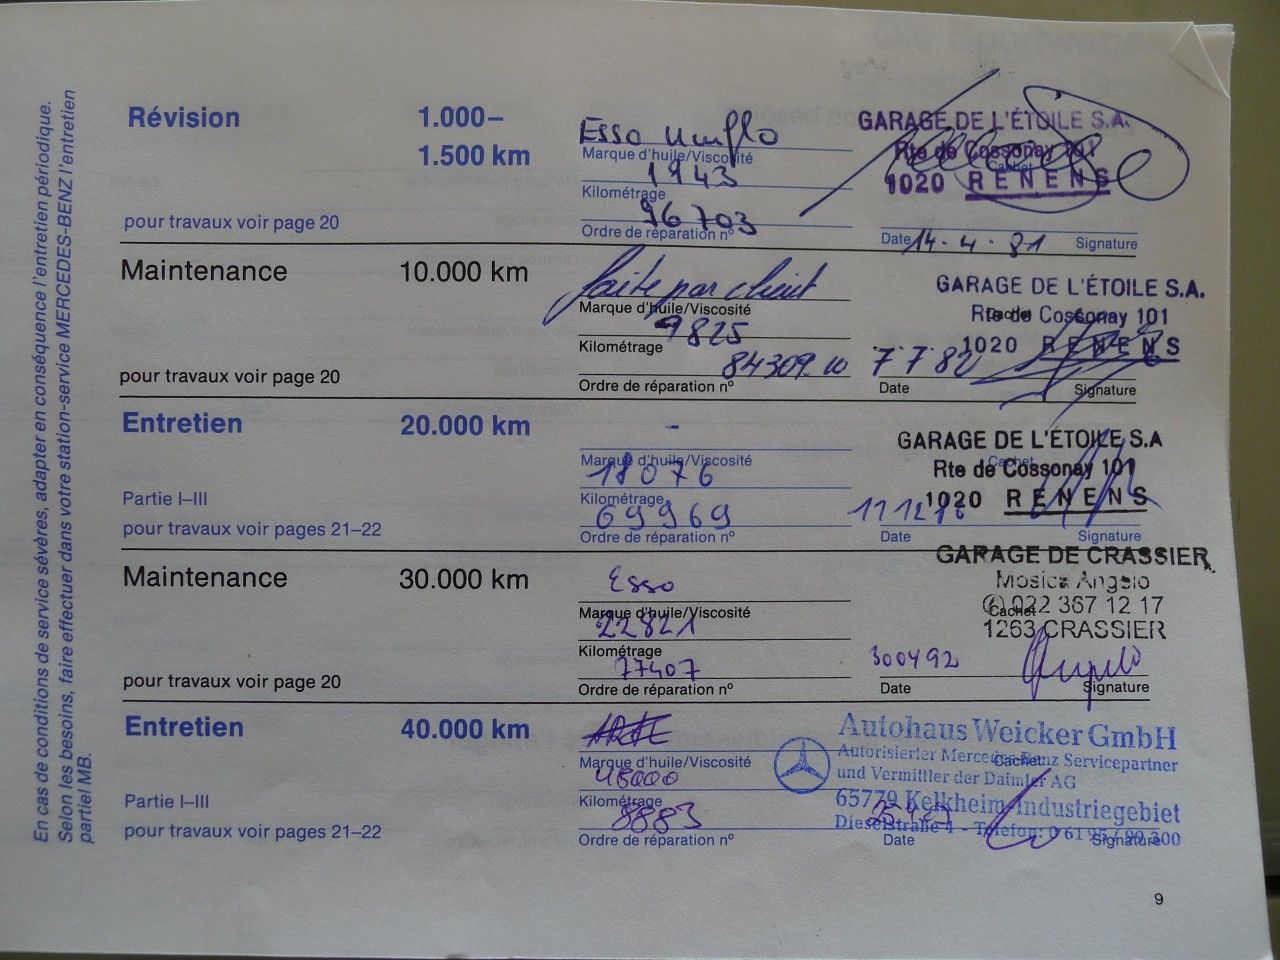 En cas de conditions de service sévères, adapter en conséquence l'entretien périodique.
Selon les besoins, faire effectuer dans votre station-service MERCEDES-BENZ l'entretien
partiel MB.
Révision 1.000–
1.500 km
Esso
Marque d'huile/Viscosité
1943
Kilométrage
96703
Ordre de réparation nº
pour travaux voir page 20
GARAGE DE L'ÉTOILE S.A.
Rte de Cossonay 101
Cachet
1020 RENENS
Date 14.4.81 Signature
Maintenance 10.000 km
faite par client
Marque d'huile/Viscosité
9825
Kilométrage
84309
Ordre de réparation nº
pour travaux voir page 20
GARAGE DE L'ÉTOILE S.A.
Rte de Cossonay 101
Cachet
1020 RENENS
7 7 82
Date Signature
Entretien 20.000 km
-
Marque d'huile/Viscosité
18076
Kilométrage
69969
Ordre de réparation nº
Partie I–III
pour travaux voir pages 21–22
GARAGE DE L'ÉTOILE S.A
Cachet
Rte de Cossonay 101
1020 RENENS
11 12
Date Signature
Maintenance 30.000 km
Esso
Marque d'huile/Viscosité
22821
Kilométrage
77407
Ordre de réparation nº
pour travaux voir page 20
GARAGE DE CRASSIER
Mosica Angelo
022 367 12 17
Cachet
1263 CRASSIER
300492
Date Signature
Entretien 40.000 km
Marque d'huile/Viscosité
48000
Kilométrage
8883
Ordre de réparation nº
Partie I–III
pour travaux voir pages 21–22
Autohaus Weicker GmbH
Autorisierter Mercedes-Benz Servicepartner
Cachet
und Vermittler der Daimler AG
65779 Kelkheim-Industriegebiet
Dieselstraße 4 - Telefon: 0 61 95 / 99 300
Date Signature
9